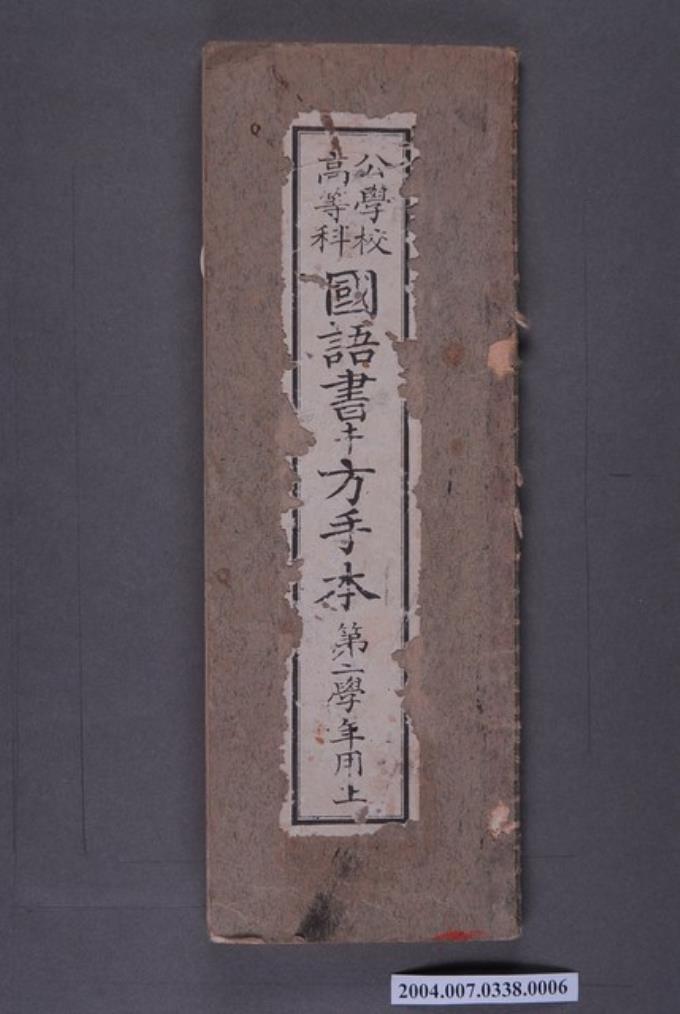 公學校
高等科
國語書キ方手本 第二學年用上
2004.007.0338.0006